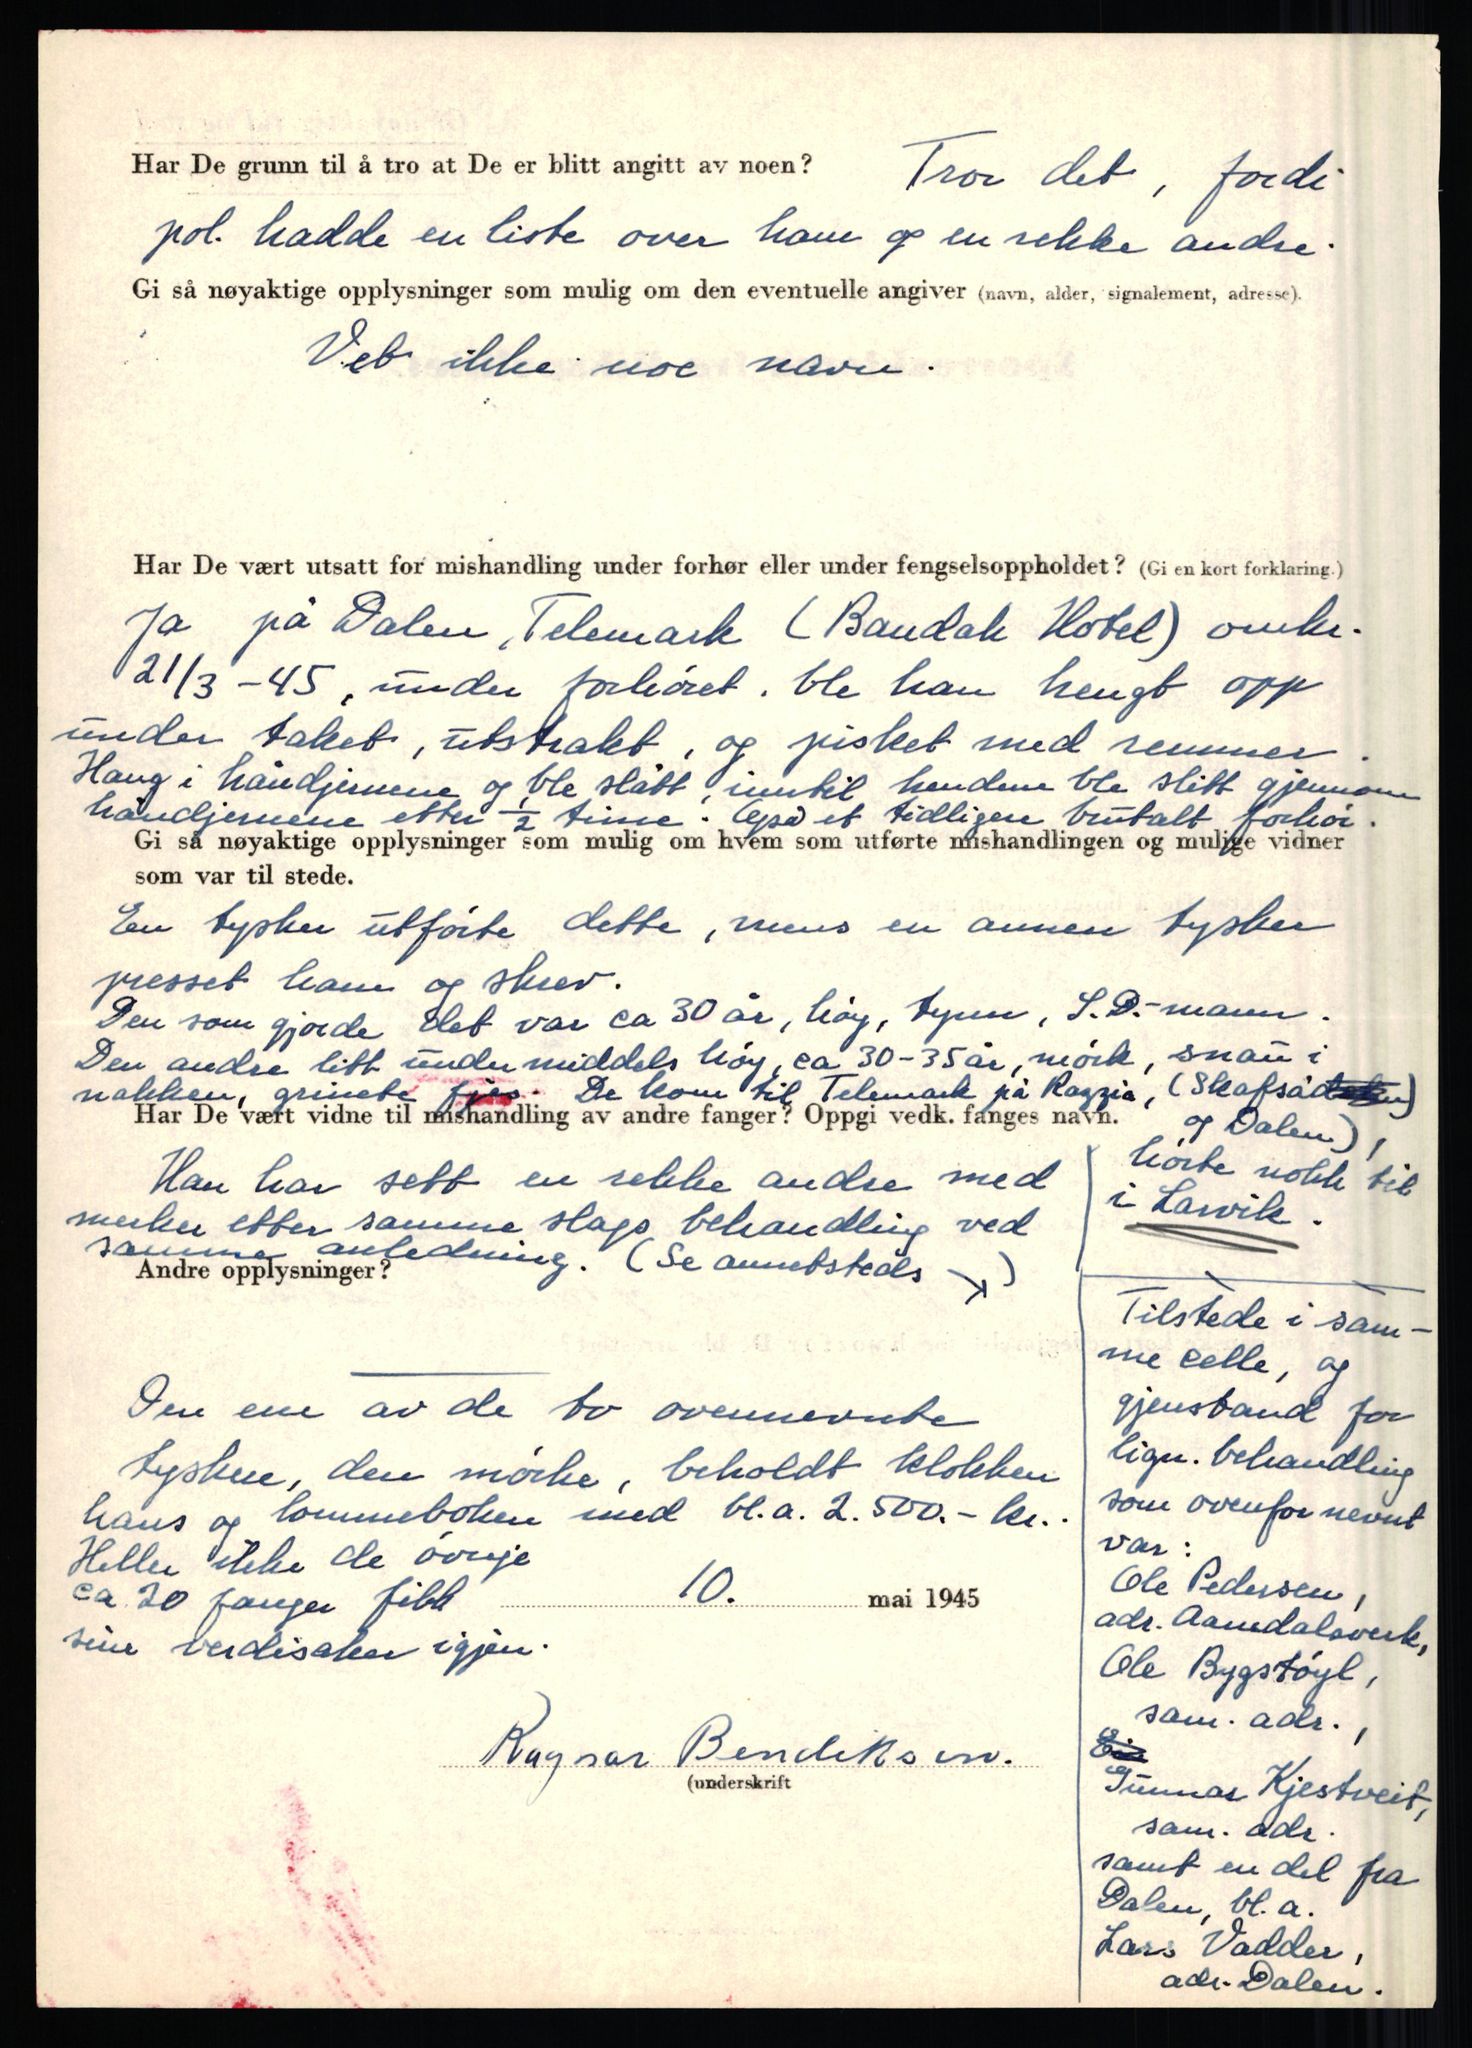 Har De grunn til å tro at De er blitt angitt av noen? Tror det, fordi
pol. hadde en liste over ham og en rekke andre.
Gi så nøyaktige opplysninger som mulig om den eventuelle angiver (navn, alder, signalement, adresse).
Vet ikke noe navn.
Har De vært utsatt for mishandling under forhør eller under fengselsoppholdet? (Gi en kort forklaring.)
Ja på Dalen, Telemark (Bandak Hotel) omkr.
21/3-45, under forhøret. ble han hengt opp
under taket, utstrakt, og pisket med remmer.
Hang i håndjernene og ble slått, inntil hendene ble slitt gjennom
håndjernene etter 1/2 time. Også et tidligere brutalt forhør.
Gi så nøyaktige opplysninger som mulig om hvem som utførte mishandlingen og mulige vidner
som var til stede.
En tysker utførte dette, mens en annen tysker
presset ham og skrev.
Den som gjorde det var ca 30 år, høy, tynn, S.D.-mann.
Den andre litt under middels høy, ca 30-35 år, mørk, snau i
nakken, grinete fjes. De kom til Telemark på Razzia, (Skafså
og Dalen),
hørte nokk til
i Larvik.
Har De vært vidne til mishandling av andre fanger? Oppgi vedk. fanges navn.
Han har sett en rekke andre med
merker etter samme slags behandling ved
samme anledning. (Se annetsteds ↘)
Andre opplysninger?
Den ene av de to ovennevnte
tyskere, den mørke, beholdt klokken
hans og lommeboken med bl.a. 2.500.- kr.
Heller ikke de øvrige
ca 20 fanger fikk
sine verdisaker igjen.
10. mai 1945
Ragnar Bendiksen.
(underskrift
Tilstede i sam-
me celle, og
gjenstand for
lign. behandling
som ovenfor nevnt
var:
Ole Pedersen,
adr. Aamdalsverk,
Ole Bygstøyl,
sam. adr.,
Gunnar Kjestveit,
sam. adr.
samt en del fra
Dalen, bl. a.
Lars Vadder,
adr. Dalen.